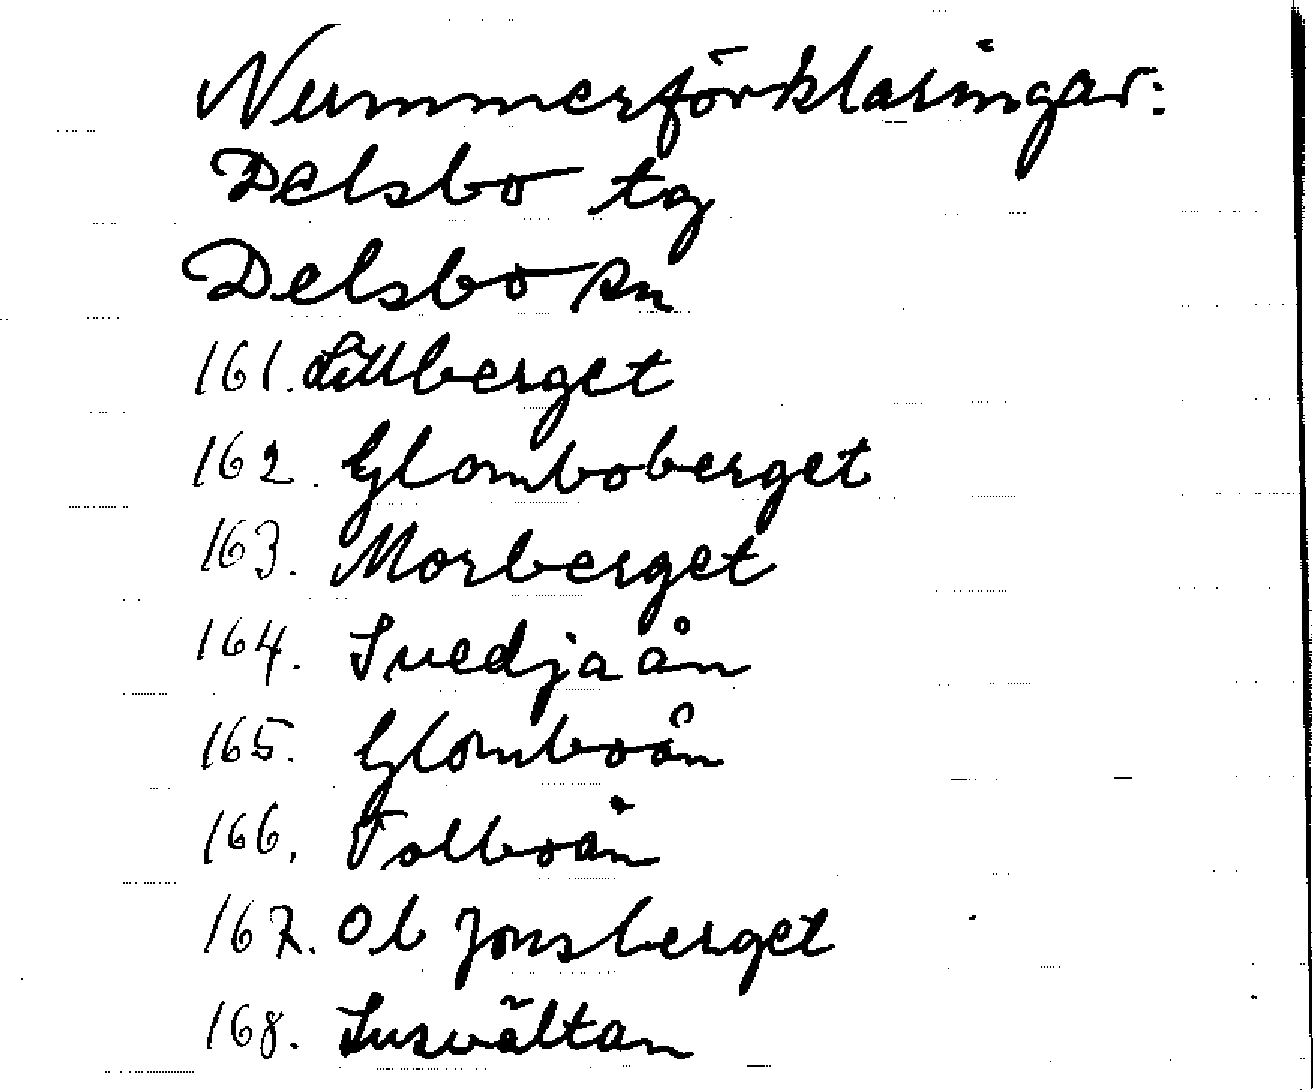 Nummerförklaringar:
Delsbo tg
Delsbo sn
161. Lillberget
162. Glomboberget
163. Morberget
164. Svedjaån
165. Glomboån
166. Tolboån
167. Ol Jonsberget
168.